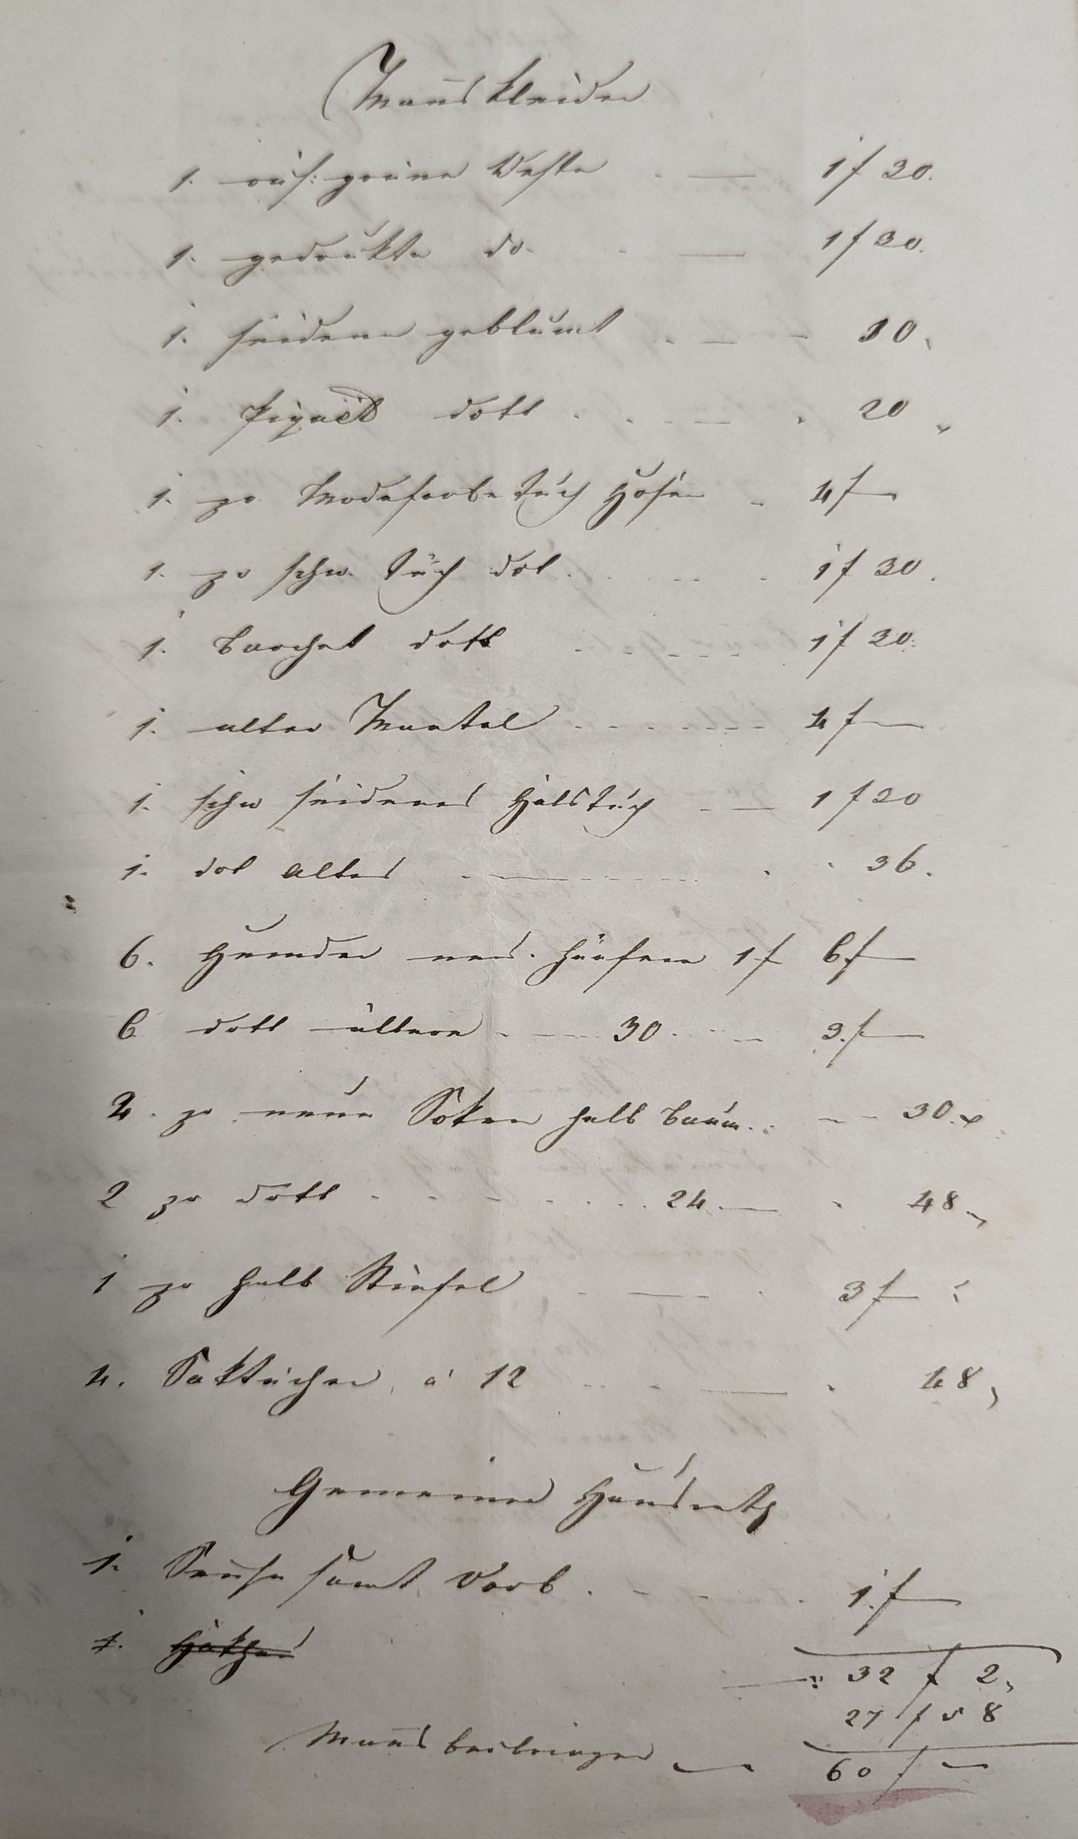 Mannskleider
1. grüne Weste 1 f 30.
1. gedrukte do. 1 f 30.
1. seidene geblümt 30.
1. Piquet dott 20
1. pr Modefarbe Tuch Hosen 4 f
1. pr schw. Tuch dot. 1 f 30.
1. Barchet dott 1 f 30.
1. alter Mantel 4 f
1. schw seidenes Halstuch 1 f 20
1. dot altes 36.
6. Hemder neu. 1 f 6 f
6 dott ältere 30. 3. f
2. pr neue Soken halb Baum.. 30. x
2 pr dott 24 48
1 pr halb Stiefel 3 f
4. Saktücher, à 12 48
Gemeiner Hausrath
1. Sense samt Worb. 1. f
1.
32 f 2
27 f 58
Manns beibringen 60 f